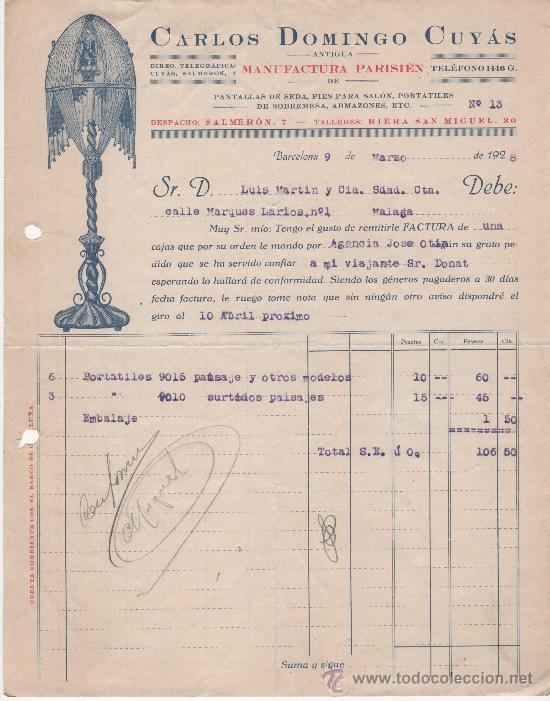 CARLOS DOMINGO CUYÁS
ANTIGUA
DIREC. TELEGRÁFICA:
CUYÁS, SALMERÓN, 7
MANUFACTURA PARISIÉN
TELÉFONO 1446 G.
DE
PANTALLAS DE SEDA, PIES PARA SALÓN, PORTÁTILES
DE SOBREMESA, ARMAZONES, ETC.
Nº 13
DESPACHO: SALMERÓN, 7 — TALLERES: RIERA SAN MIGUEL, 30
Barcelona 9 de Marzo de 1928
Sr. D. Luis Martin y Cia. Sdad. Cta. Debe:
calle Marques Larios, nº1 Malaga
Muy Sr. mío: Tengo el gusto de remitirle FACTURA de una
cajas que por su orden le mando por Agencia Jose Otin según su grato pe-
dido que se ha servido confiar a mi viajante Sr. Donat
esperando lo hallará de conformidad. Siendo los géneros pagaderos a 30 días
fecha factura, le ruego tome nota que sin ningún otro aviso dispondré el
giro al 10 Abril proximo
Pesetas Cts. Pesetas Cts.
6 Portatiles 9015 paisaje y otros modelos 10 -- 60 --
3 " 9010 surtidos paisajes 15 -- 45 --
Embalaje 1 50
Total S.E. ú O. 106 50
Miguel
CUENTA CORRIENTE CON EL BANCO DE CATALUÑA
Suma y sigue
todocoleccion
www.todocoleccion.net